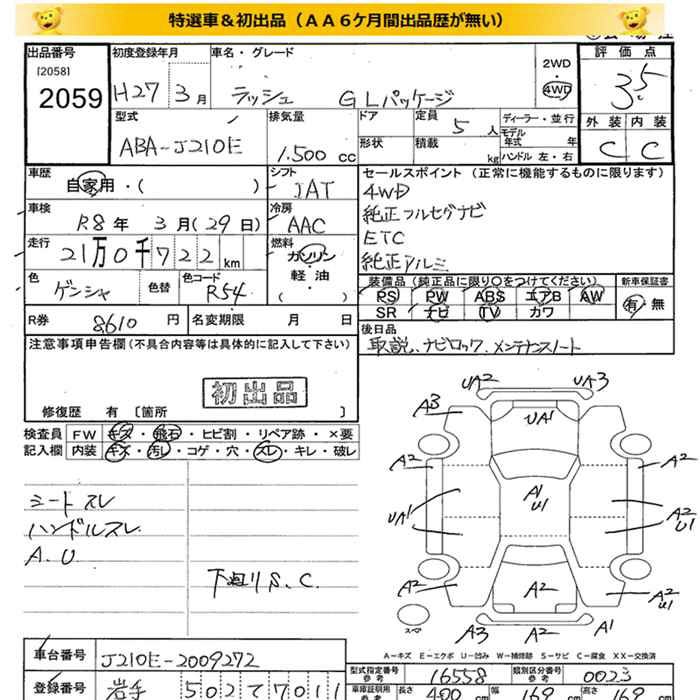 特選車&初出品（AA6ケ月間出品歴が無い）
出品番号 [2058] 2059
初度登録年月 H27 3月
車名・グレード ラッシュ GLパッケージ
2WD 4WD
評価点 3.5
型式 ABA-J210E
排気量 1.500 cc
ドア 形状
定員 5人
積載 kg
ディーラー・並行
モデル年式 年
ハンドル 左・右
外装 C 内装 C
車歴 自家用・( )
シフト IAT
セールスポイント（正常に機能するものに限ります）
4WD
純正フルセグナビ
ETC
純正アルミ
車検 R8年 3月(29日)
冷房 AAC
走行 21万0千722km
燃料 ガソリン 軽・油 ( )
色 ゲンシャ 色替 色コード R54
装備品（純正品に限り○をつけてください） 新車保証書
PS PW ABS エアB AW 有・無
SR ナビ TV カワ
R券 8610円 名変期限 月 日
後日品
取説、ナビロック、メンテナンスノート
注意事項申告欄(不具合内容等は具体的に記入して下さい)
初出品
修復歴 有 〔箇所 〕
検査員記入欄
FW キズ・飛石・ヒビ割・リペア跡・×要
内装 キズ・汚し・コゲ・穴・スレ・キレ・破レ
シートスレ
ハンドルスレ
A.U
下廻りS.C.
UA2 UA3
A3 UA1
A2 A2
A1 U1
UA1 A2 U1
A2 A2 A2 U1
スペア
A3 A2 A1
A－キズ E－エクボ U－凹み W－補修跡 S－サビ C－腐食 XX－交換済
車台番号 J210E-2009272
型式指定番号 参考 16558 類別区分番号 参考 0023
登録番号 岩手 502 7011
車庫証明用 参考 長さ 400cm 幅 169 高さ 169 cm